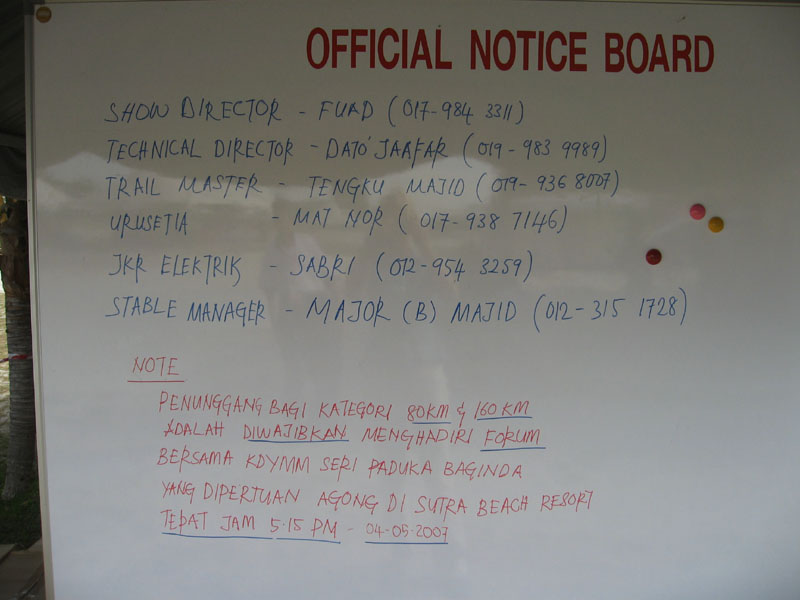 OFFICIAL NOTICE BOARD
SHOW DIRECTOR - FUAD (017-984 3311)
TECHNICAL DIRECTOR - DATO' JAAFAR (019-983 9989)
TRAIL MASTER - TENGKU MAJID (019-936 8007)
URUSETIA - MAT NOR (017-938 7146)
JKR ELEKTRIK - SABRI (012-954 3259)
STABLE MANAGER - MAJOR (B) MAJID (012-315 1728)
NOTE
PENUNGGANG BAGI KATEGORI 80KM & 160KM
ADALAH DIWAJIBKAN MENGHADIRI FORUM
BERSAMA KDYMM SERI PADUKA BAGINDA
YANG DIPERTUAN AGONG DI SUTRA BEACH RESORT
TEPAT JAM 5.15 PM - 04-05-2007